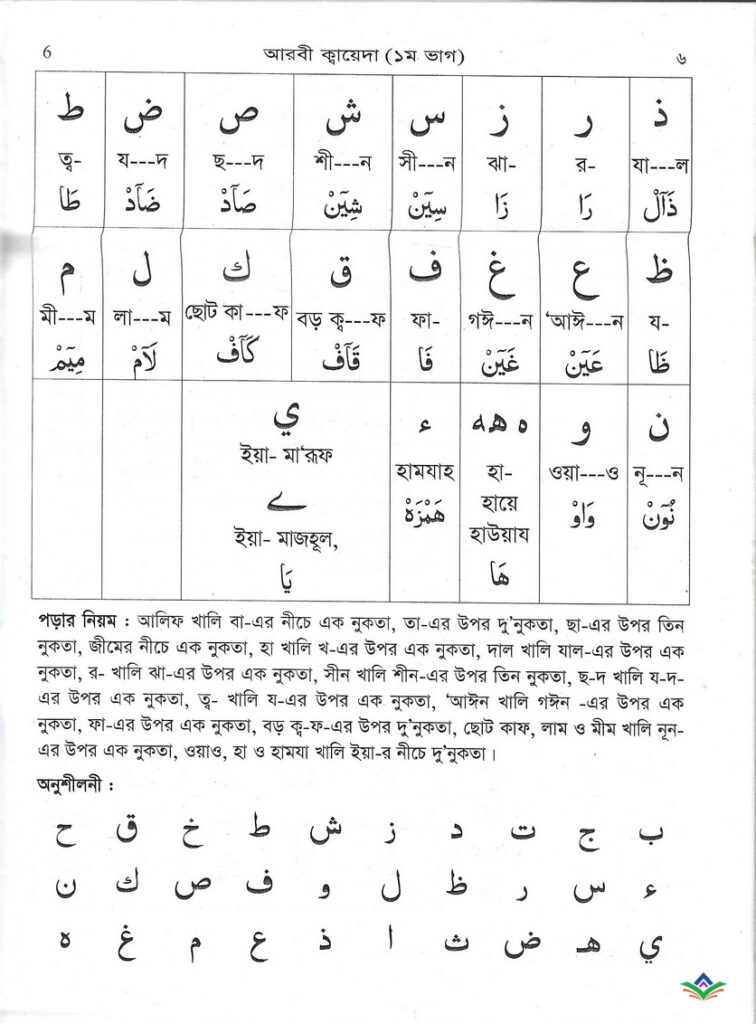 6 আরবী ক্বায়েদা (১ম ভাগ) ৬
ذ ر ز س ش ص ض ط
যা---ল র- ঝা- সী---ন শী---ন ছ---দ য---দ ত্ব-
ذَآلْ رَا زَا سِيَنْ شِيَنْ صَآدْ ضَآدْ طَا
ظ ع غ ف ق ك ل م
য- ‘আঈ---ন গঈ---ন ফা- বড় ক্ব---ফ ছোট কা---ফ লা---ম মী---ম
ظَا عَيَنْ غَيَنْ فَا قَآفْ كَآفْ لَآمْ مِيَمْ
ن و ه هه ء ي
নূ---ন ওয়া---ও হা- হামযাহ ইয়া- মা‘রূফ
نُوَنْ وَاوْ হায়ে هَمْزَهْ ے
হাউয়ায ইয়া- মাজহূল,
هَا يَا
পড়ার নিয়ম : আলিফ খালি বা-এর নীচে এক নুকতা, তা-এর উপর দু’নুকতা, ছা-এর উপর তিন
নুকতা, জীমের নীচে এক নুকতা, হা খালি খ-এর উপর এক নুকতা, দাল খালি যাল-এর উপর এক
নুকতা, র- খালি ঝা-এর উপর এক নুকতা, সীন খালি শীন-এর উপর তিন নুকতা, ছ-দ খালি য-দ-
এর উপর এক নুকতা, ত্ব- খালি য-এর উপর এক নুকতা, ‘আঈন খালি গঈন -এর উপর এক
নুকতা, ফা-এর উপর এক নুকতা, বড় ক্ব-ফ-এর উপর দু’নুকতা, ছোট কাফ, লাম ও মীম খালি নূন-
এর উপর এক নুকতা, ওয়াও, হা ও হামযা খালি ইয়া-র নীচে দু’নুকতা।
অনুশীলনী :
ب ج ت د ز ش ط خ ق ح
ء س ر ظ ل و ف ص ك ن
ي هـ ض ث ا ذ ع م غ ه